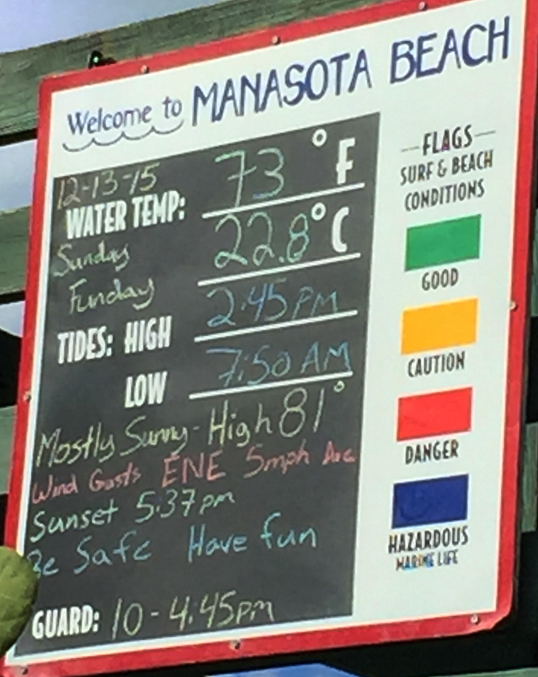 Welcome to MANASOTA BEACH
12-13-15
WATER TEMP: 73 °F
Sunday 22.8 °C
Funday
TIDES: HIGH 2:45 PM
LOW 7:50 AM
Mostly Sunny - High 81°
Wind Gusts ENE 5mph
Sunset 5:37pm
Be Safe Have fun
GUARD: 10 - 4:45pm
FLAGS
SURF & BEACH
CONDITIONS
GOOD
CAUTION
DANGER
HAZARDOUS
MARINE LIFE